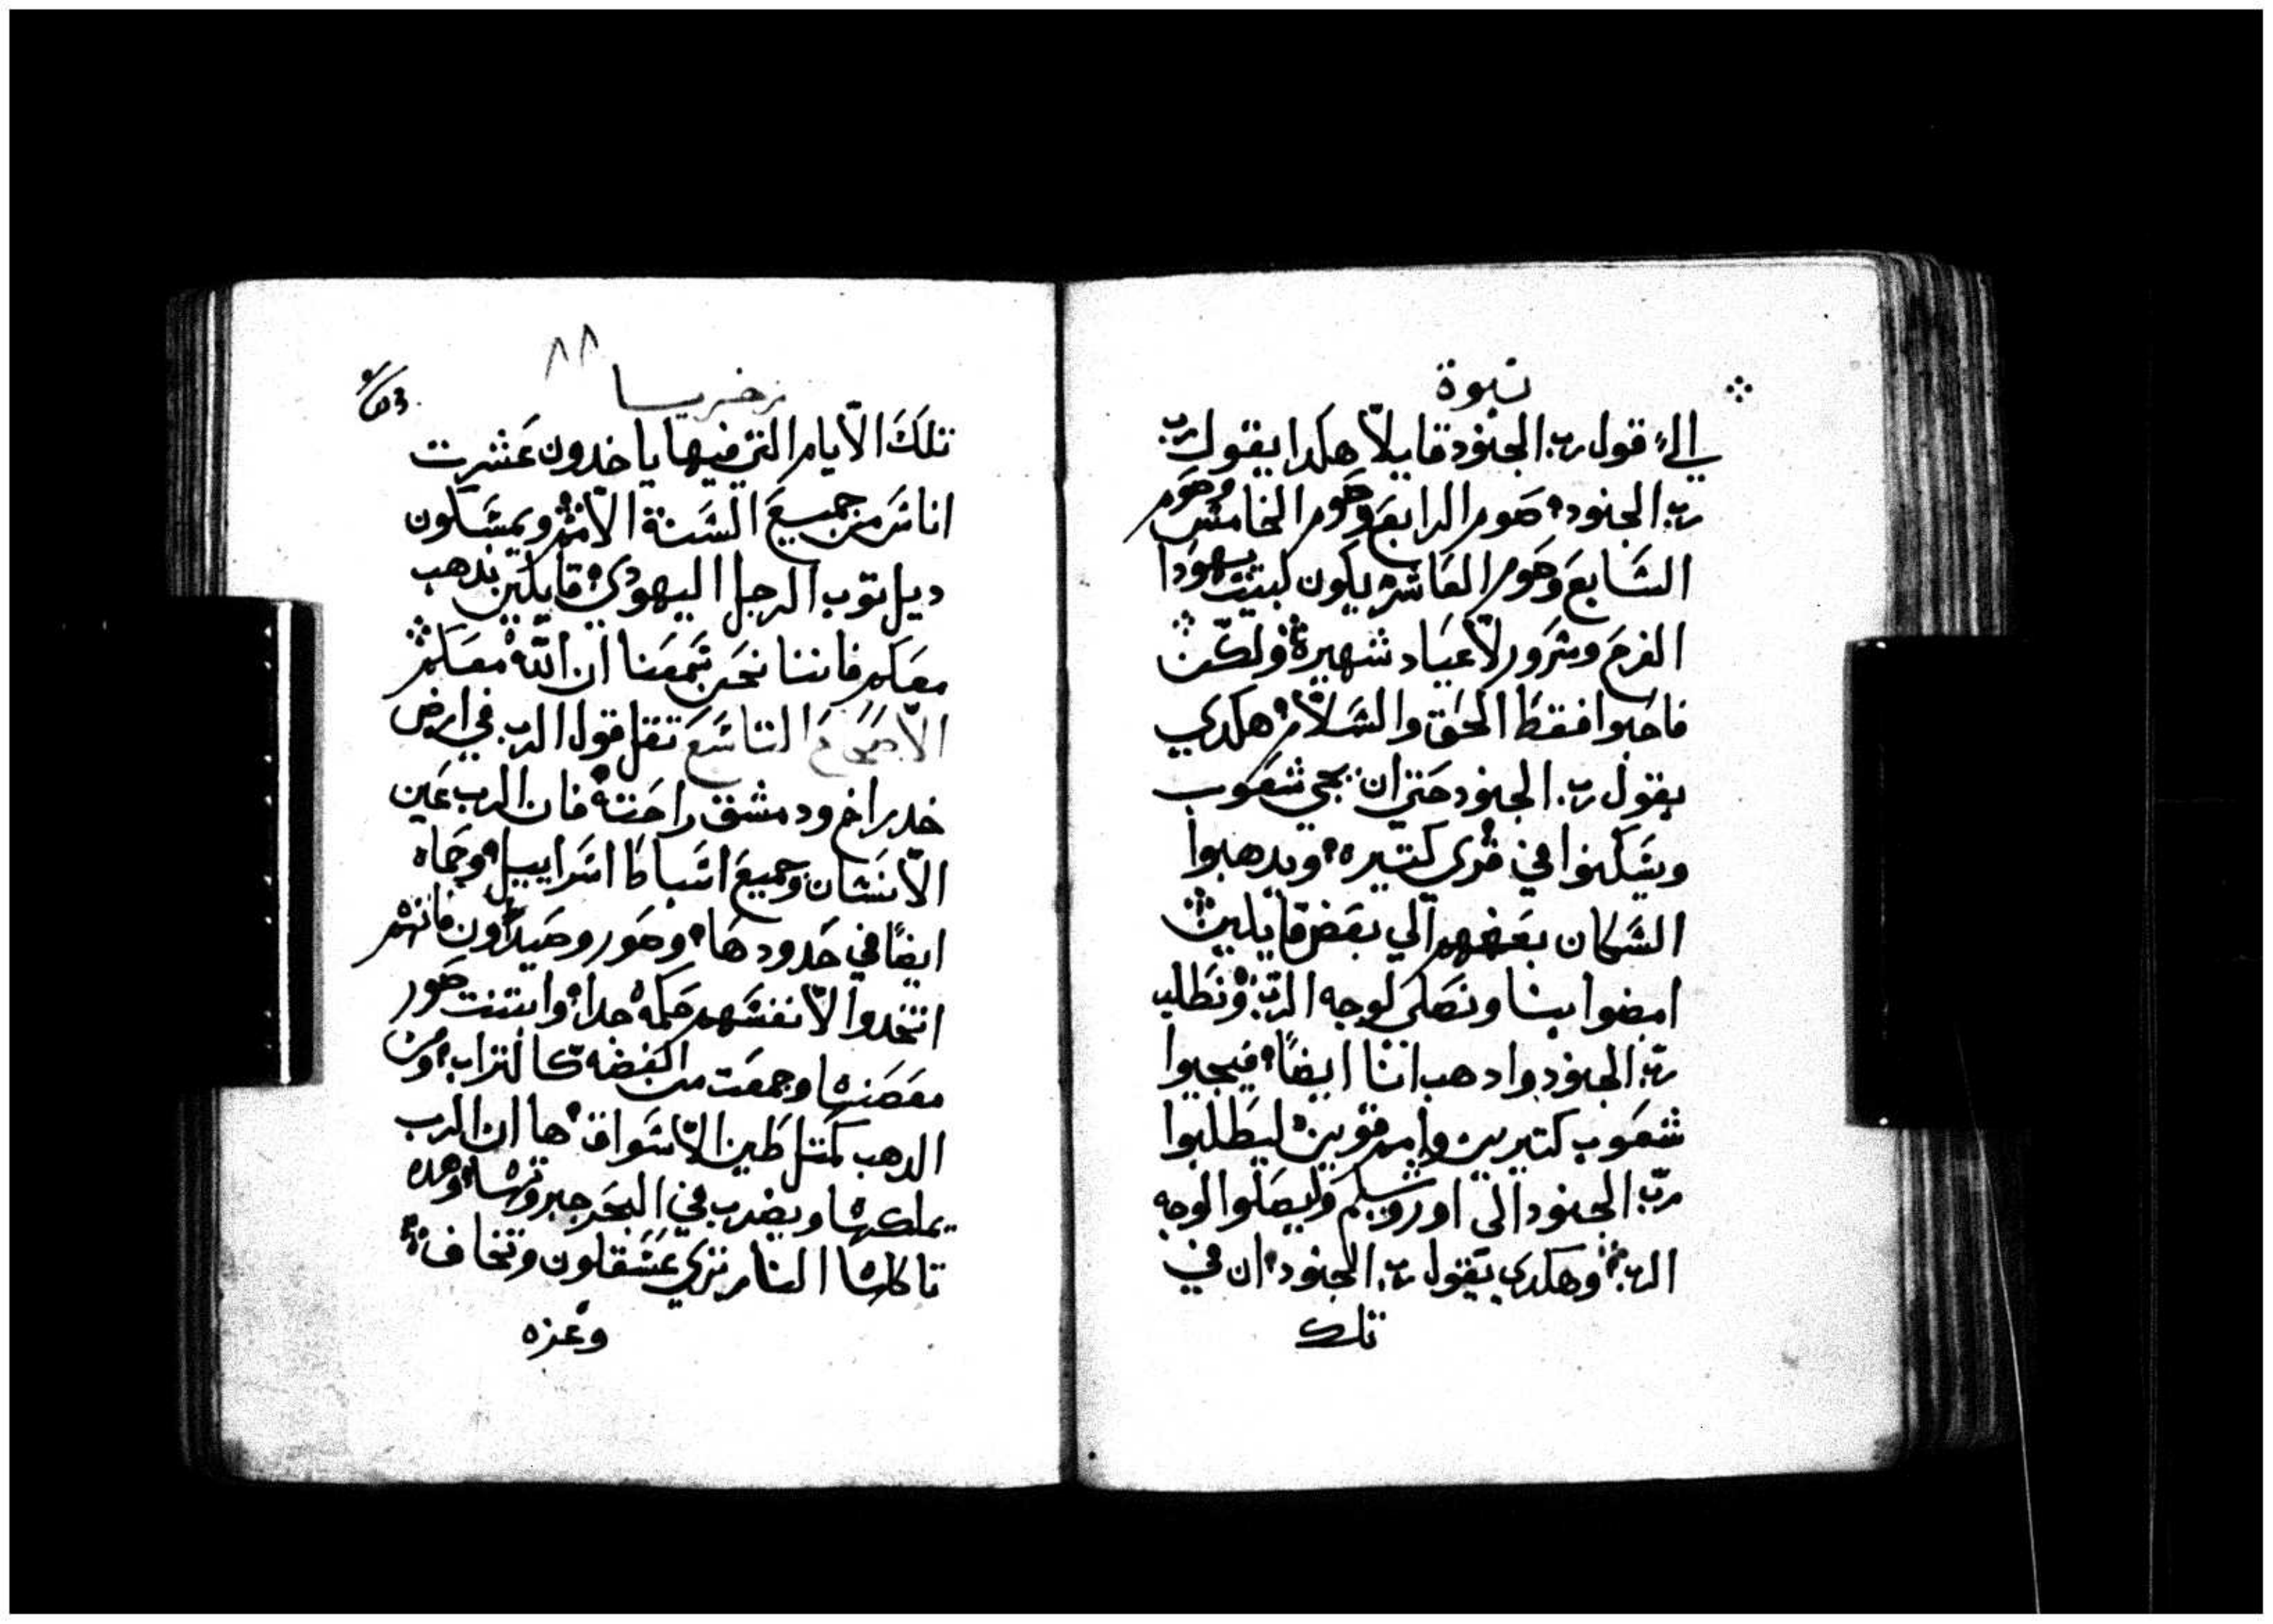 نبوة
الي قول رب الجنود قايلاً هكدا يقول رب
رب الجنود صوم الرابع وصوم الخامس وصوم
السابع وصوم العاشر يكون لبيت يهودا
الفرح وسرور لاعياد شهيرة ولكن
فاحبوا فقط الحق والسلام هكدي
يقول رب الجنود حتي ان يجي شعوب
ويسكنوا في قري كتيره ويدهبوا
السكان بعضهم الي بعض قايلين
امضوا بنا ونصلي لوجه الرب ونطلب
رب الجنود وادهب اننا ايضاً فيجيوا
شعوب كتيرين وامم قويين ليطلبوا
رب الجنود الي اورشليم وليصلوا لوجه
الرب وهكدي يقول رب الجنود ان في
تلك
زخريا ٨٨
تلك الايام التي فيها ياخدون عشرت
اناس من جميع السنة الامم ويمسكون
ديل توب الرجل اليهودي قايلين ندهب
معكم فاننا نحن سمعنا ان الله معكم
الاصحاح التاسع تقل قول الرب في ارض
خدراخ ودمشق راحته فان الرب عين
الانسان وجميع اسباط اسراييل وحماه
ايضاً في حدودها وصور وصيدون فانهم
اتخدوا لانفسهم حكمه جداً وابتنت صور
معصنها وجمعت من الفضه كالتراب ومن
الدهب كمتل طين الاسواق ها ان الرب
يملكها ويضرب في البحر جبروتها وهده
تاكلها النار تري عسقلون وتخاف
وغزه